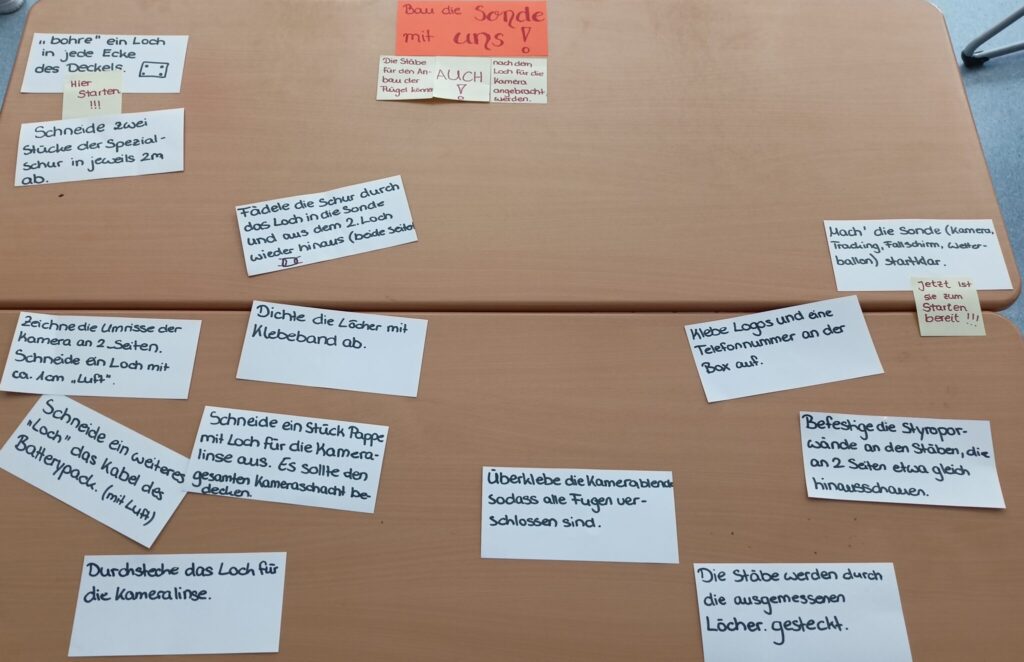 Bau die Sonde
mit uns!
Die Stäbe
für den An-
bau der
Flügel können
AUCH
!
nach dem
Loch für die
Kamera
angebracht
werden.
„bohre" ein Loch
in jede Ecke
des Deckels.
Hier
Starten
!!!
Schneide zwei
Stücke der Spezial-
schur in jeweils 2m
ab.
Fädele die Schur durch
das Loch in die Sonde
und aus dem 2. Loch
wieder hinaus (beide Seiten
Mach' die Sonde (Kamera,
Tracking, Fallschirm, Wetter-
ballon) startklar.
Jetzt ist
sie zum
Starten
bereit !!!
Zeichne die Umrisse der
Kamera an 2 Seiten.
Schneide ein Loch mit
ca. 1cm „Luft".
Dichte die Löcher mit
Klebeband ab.
Klebe Logos und eine
Telefonnummer an der
Box auf.
Schneide ein weiteres
"Loch" das Kabel des
Batterypack. (mit Luft)
Schneide ein Stück Pappe
mit Loch für die Kamera-
linse aus. Es sollte den
gesamten Kameraschacht be-
decken.
Überklebe die Kamerablende
sodass alle Fugen ver-
schlossen sind.
Befestige die Styropor-
wände an den Stäben, die
an 2 Seiten etwa gleich
hinausschauen.
Durchsteche das Loch für
die Kameralinse.
Die Stäbe werden durch
die ausgemessenen
Löcher. gesteckt.